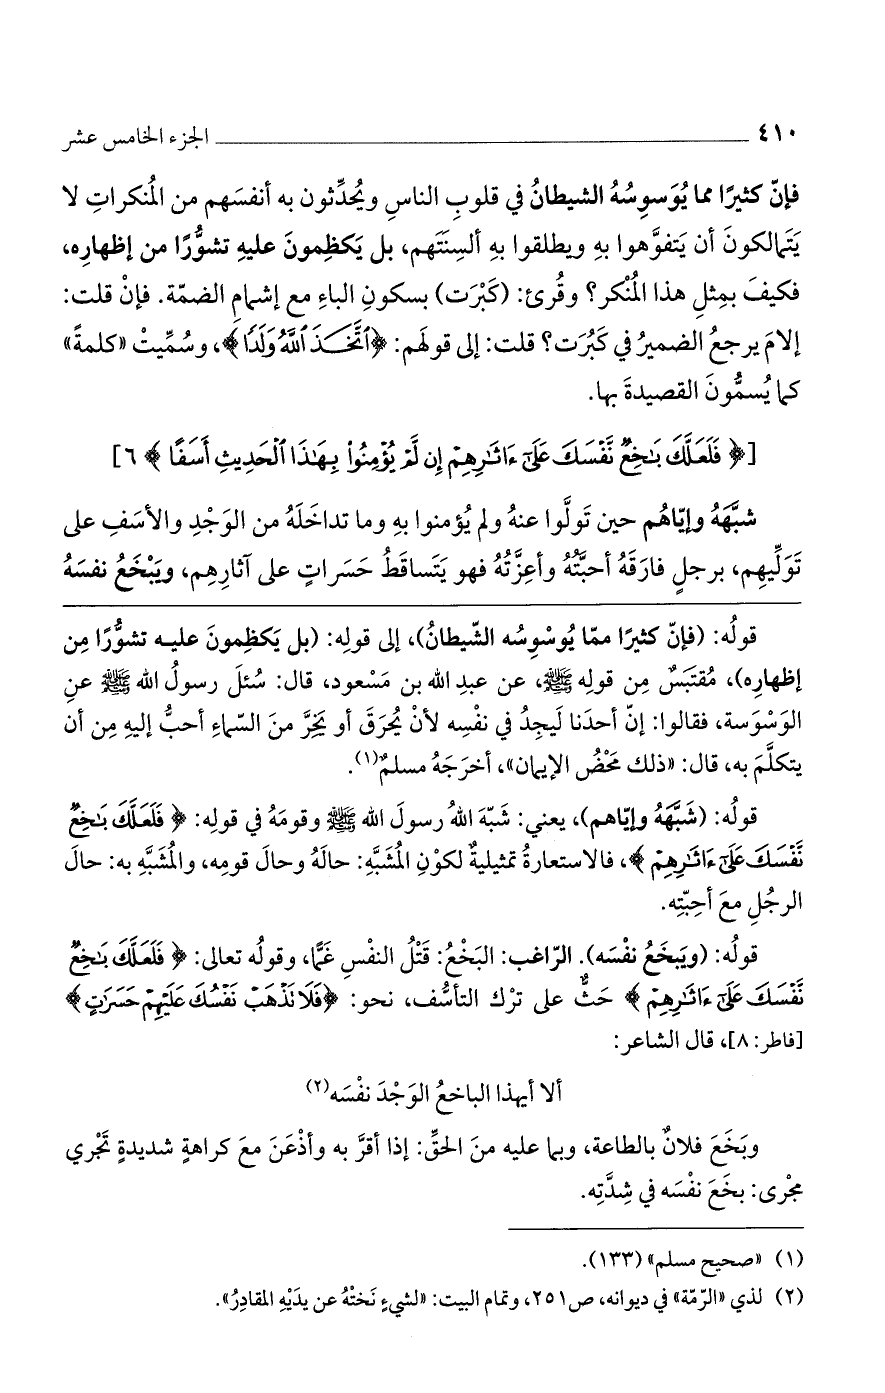 ٤١٠ الجزء الخامس عشر
فإنّ كثيرًا مما يُوَسوِسُهُ الشيطانُ في قلوبِ الناسِ ويُحدِّثون به أنفسَهم من المُنكراتِ لا
يَتَمالكونَ أن يَتفوَّهوا بهِ ويطلقوا بهِ ألسِنَتَهم، بل يَكظِمونَ عليهِ تشوُّرًا من إظهارِه،
فكيفَ بمِثلِ هذا المُنْكر؟ وقُرئ: (كَبْرَت) بسكونِ الباءِ مع إشمامِ الضمّة. فإنْ قلت:
إلامَ يرجعُ الضميرُ في كَبُرَت؟ قلت: إلى قولهَم: ﴿ٱتَّخَذَ ٱللَّهُ وَلَدًا﴾، وسُمِّيتْ «كلمةً»
كما يُسمُّونَ القصيدةَ بها.
[﴿ فَلَعَلَّكَ بَٰخِعٌ نَّفْسَكَ عَلَىٰٓ ءَاثَٰرِهِمْ إِن لَّمْ يُؤْمِنُوا۟ بِهَٰذَا ٱلْحَدِيثِ أَسَفًا ﴾ ٦]
شبَّهَهُ وإيّاهُم حين تَولَّوا عنهُ ولم يُؤمنوا بهِ وما تداخَلَهُ من الوَجْدِ والأسَفِ على
تَوَلِّيهِم، برجلٍ فارَقَهُ أحبَّتُهُ وأعِزَّتُهُ فهو يَتَساقَطُ حَسَراتٍ على آثارِهِم، ويَبْخَعُ نفسَهُ
قولُه: (فإنّ كثيرًا ممّا يُوسْوِسُه الشّيطانُ)، إلى قولِه: (بل يَكظِمونَ عليه تشوُّرًا مِن
إظهارِه)، مُقتبَسٌ مِن قولِه ﷺ، عن عبدِ الله بن مَسْعود، قال: سُئلَ رسولُ الله ﷺ عنِ
الوَسْوَسة، فقالوا: إنّ أحدَنا لَيجِدُ في نفْسِه لأنْ يُحرَقَ أو يَخِرَّ منَ السّماءِ أحبُّ إليهِ مِن أن
يتكلَّمَ به، قال: «ذلك مَحْضُ الإيمان»، أخرَجَهُ مسلمٌ(١).
قولُه: (شبَّهَهُ وإيّاهم)، يعني: شَبّهَ اللهُ رسولَ الله ﷺ وقومَهُ في قولِه: ﴿ فَلَعَلَّكَ بَٰخِعٌ
نَّفْسَكَ عَلَىٰٓ ءَاثَٰرِهِمْ ﴾، فالاستعارةُ تمثيليةٌ لكوْنِ المُشبَّهِ: حالَهُ وحالَ قومِه، والمُشبَّهِ به: حالَ
الرجُلِ معَ أحِبّتِه.
قولُه: (ويَبخَعُ نفْسَه). الرّاغب: البَخْعُ: قَتْلُ النفْسِ غَمًّا، وقولُه تعالى: ﴿ فَلَعَلَّكَ بَٰخِعٌ
نَّفْسَكَ عَلَىٰٓ ءَاثَٰرِهِمْ ﴾ حَثٌّ على ترْك التأسُّف، نحو: ﴿فَلَا نَذْهَبْ نَفْسُكَ عَلَيْهِمْ حَسَرَٰتٍ﴾
[فاطر: ٨]، قال الشاعر:
ألا أيهذا الباخعُ الوَجْدَ نفْسَه(٢)
وبَخَعَ فلانٌ بالطاعة، وبما عليه منَ الحقِّ: إذا أقرَّ به وأذْعَنَ معَ كراهةٍ شديدةٍ تَجْري
مجْرى: بخَعَ نفْسَه في شِدَّتِه.
(١) «صحيح مسلم» (١٣٣).
(٢) لذي «الرّمّة» في ديوانه، ص٢٥١، وتمام البيت: «لشيءٍ نَحَتْهُ عن يدَيْهِ المقادِرُ».